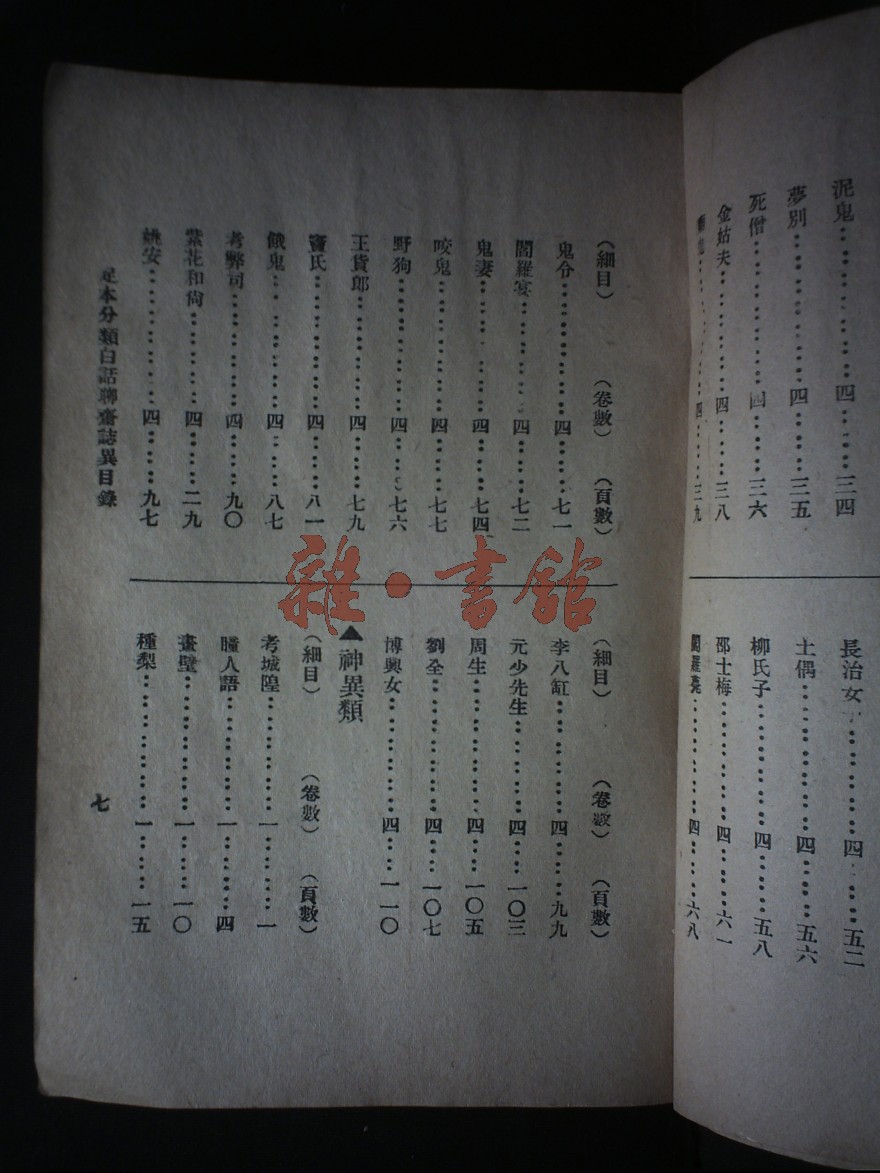 泥鬼……四……三四
夢別……四……三五
死僧……四……三六
金姑夫……四……三八
四……三九
長治女……四……五二
土偶……四……五六
柳氏子……四……五八
邵士梅……四……六一
閻羅薨……四……六八
（細目）　（卷數）　（頁數）
鬼令……四……七一
閻羅宴……四……七二
鬼妻……四……七四
咬鬼……四……七七
野狗……四……七六
王貨郎……四……七九
竇氏……四……八一
餓鬼……四……八七
考弊司……四……九〇
紫花和尙……四……二九
姚安……四……九七
（細目）　（卷數）　（頁數）
李八缸……四……九九
元少先生……四……一〇三
周生……四……一〇五
劉全……四……一〇七
博興女……四……一一〇
▲神異類
（細目）　（卷數）　（頁數）
考城隍……一……一
瞳人語……一……四
畫壁……一……一〇
種梨……一……一五
足本分類白話聊齋誌異目錄
七
雜·書館